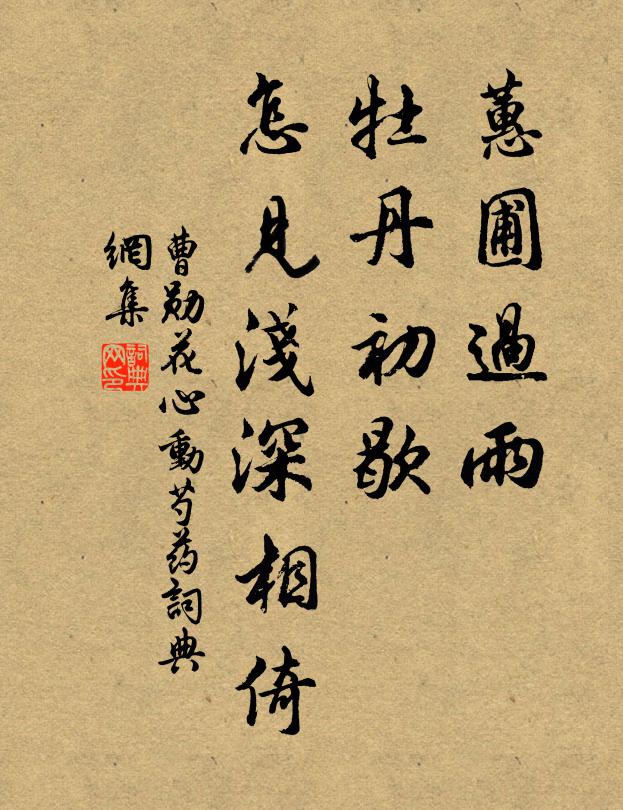 蕙圃過雨
牡丹初歇
怎見淺深相倚
曹勛花心動芍药詞典
網集
詞典
网印